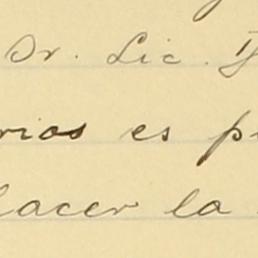 Dr. Lic.
rios es p
lacer la